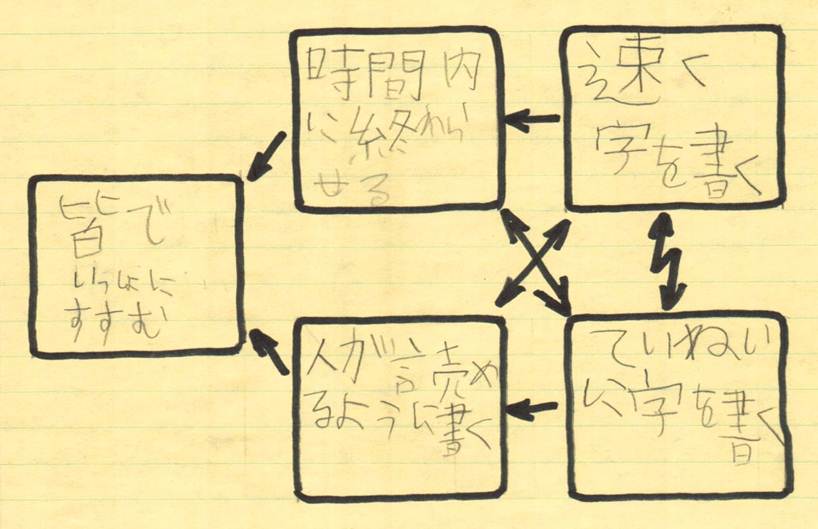 時間内
に終わら
せる
速く
字を書く
皆で
いっしょに
すすむ
人が読め
るように書く
ていねい
に字を書く